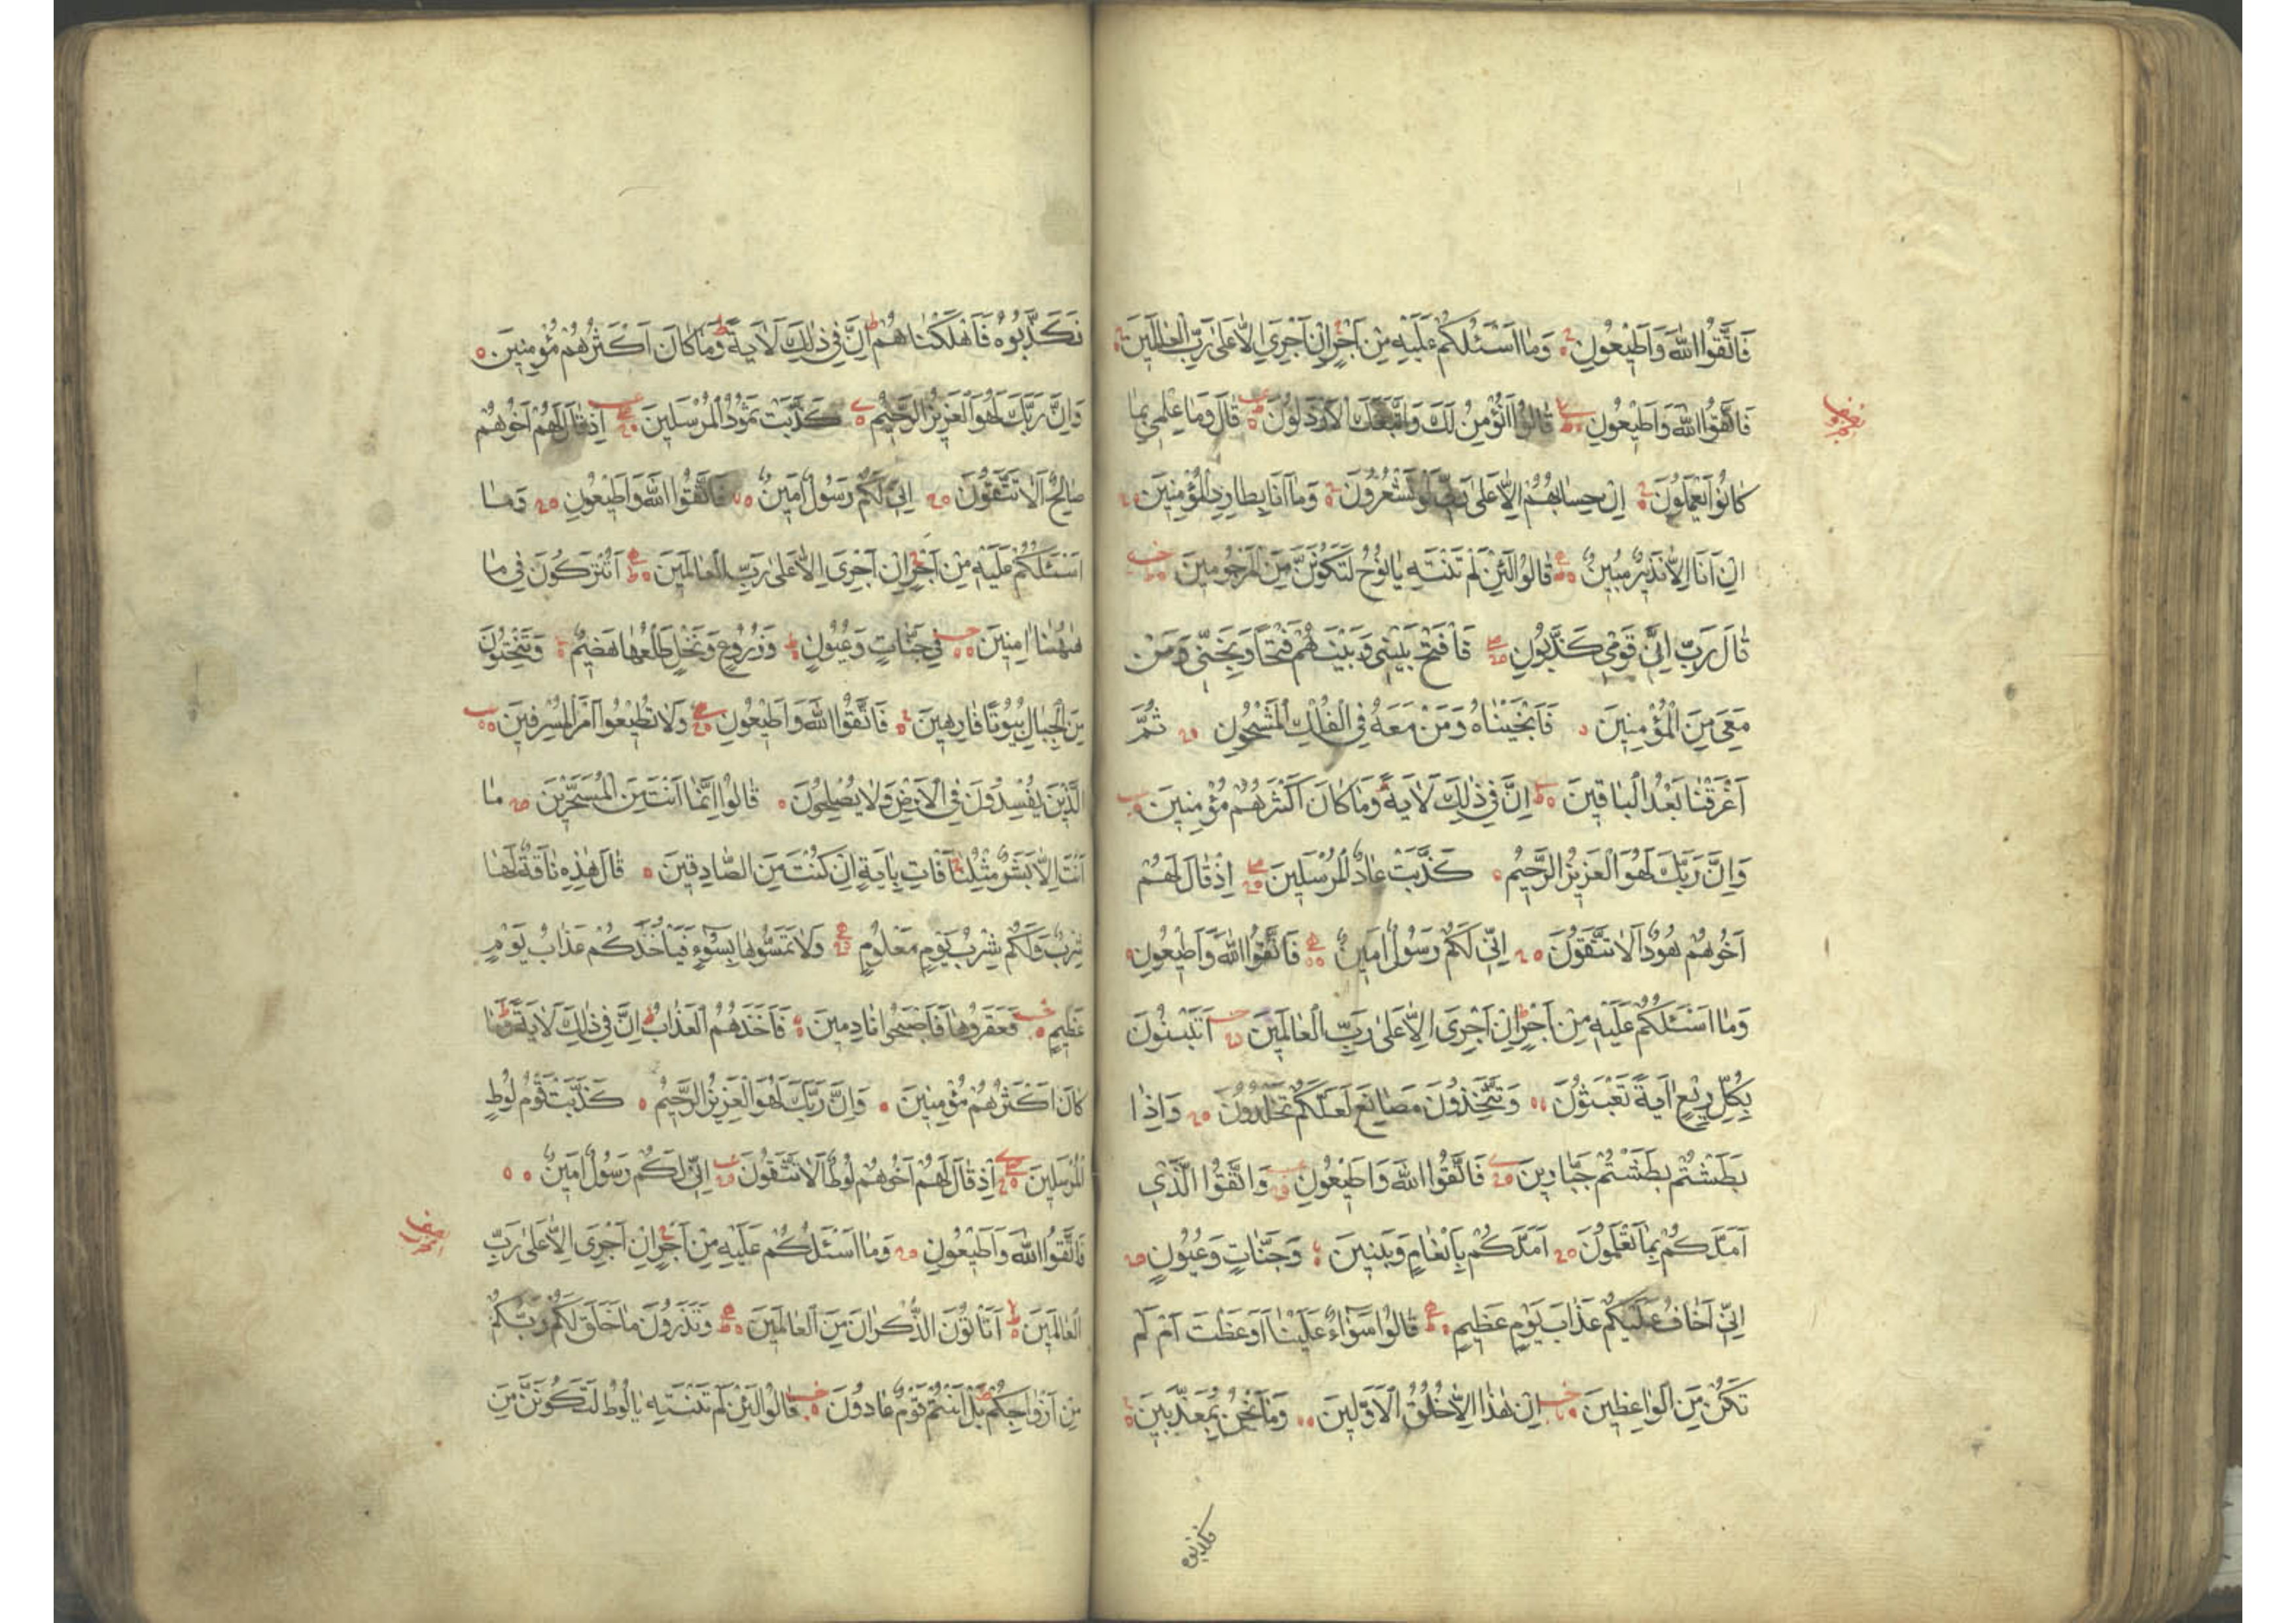 فَاتَّقُوا اللّٰهَ وَاَطِيْعُونِ وَمَا اَسْئَلُكُمْ عَلَيْهِ مِنْ اَجْرٍ اِنْ اَجْرِيَ اِلَّا عَلٰى رَبِّ الْعَالَمِينَ
فَاتَّقُوا اللّٰهَ وَاَطِيْعُونِ قَالُوا اَنُؤْمِنُ لَكَ وَاتَّبَعَكَ الْاَرْذَلُونَ قَالَ وَمَا عِلْمِي بِمَا
نصف
كَانُوا يَعْمَلُونَ اِنْ حِسَابُهُمْ اِلَّا عَلٰى رَبِّي لَوْ تَشْعُرُونَ وَمَا اَنَا بِطَارِدِ الْمُؤْمِنِينَ
اِنْ اَنَا اِلَّا نَذِيرٌ مُبِينٌ قَالُوا لَئِنْ لَمْ تَنْتَهِ يَا نُوحُ لَتَكُونَنَّ مِنَ الْمَرْجُومِينَ
قَالَ رَبِّ اِنَّ قَوْمِي كَذَّبُونِ فَافْتَحْ بَيْنِي وَبَيْنَهُمْ فَتْحًا وَنَجِّنِي وَمَنْ
مَعِيَ مِنَ الْمُؤْمِنِينَ فَاَنْجَيْنَاهُ وَمَنْ مَعَهُ فِي الْفُلْكِ الْمَشْحُونِ ثُمَّ
اَغْرَقْنَا بَعْدُ الْبَاقِينَ اِنَّ فِي ذٰلِكَ لَاٰيَةً وَمَا كَانَ اَكْثَرُهُمْ مُؤْمِنِينَ
وَاِنَّ رَبَّكَ لَهُوَ الْعَزِيزُ الرَّحِيْمُ كَذَّبَتْ عَادٌ الْمُرْسَلِينَ اِذْ قَالَ لَهُمْ
اَخُوهُمْ هُودٌ اَلَا تَتَّقُونَ اِنِّي لَكُمْ رَسُولٌ اَمِينٌ فَاتَّقُوا اللّٰهَ وَاَطِيْعُونِ
وَمَا اَسْئَلُكُمْ عَلَيْهِ مِنْ اَجْرٍ اِنْ اَجْرِيَ اِلَّا عَلٰى رَبِّ الْعَالَمِينَ اَتَبْنُونَ
بِكُلِّ رِيعٍ اٰيَةً تَعْبَثُونَ وَتَتَّخِذُونَ مَصَانِعَ لَعَلَّكُمْ تَخْلُدُونَ وَاِذَا
بَطَشْتُمْ بَطَشْتُمْ جَبَّارِينَ فَاتَّقُوا اللّٰهَ وَاَطِيْعُونِ وَاتَّقُوا الَّذِي
اَمَدَّكُمْ بِمَا تَعْلَمُونَ اَمَدَّكُمْ بِاَنْعَامٍ وَبَنِينَ وَجَنَّاتٍ وَعُيُونٍ
اِنِّي اَخَافُ عَلَيْكُمْ عَذَابَ يَوْمٍ عَظِيمٍ قَالُوا سَوَاءٌ عَلَيْنَا اَوَعَظْتَ اَمْ لَمْ
تَكُنْ مِنَ الْوَاعِظِينَ اِنْ هٰذَا اِلَّا خُلُقُ الْاَوَّلِينَ وَمَا نَحْنُ بِمُعَذَّبِينَ
فكذبوه
فَكَذَّبُوهُ فَاَهْلَكْنَاهُمْ اِنَّ فِي ذٰلِكَ لَاٰيَةً وَمَا كَانَ اَكْثَرُهُمْ مُؤْمِنِينَ
وَاِنَّ رَبَّكَ لَهُوَ الْعَزِيزُ الرَّحِيْمُ كَذَّبَتْ ثَمُودُ الْمُرْسَلِينَ اِذْ قَالَ لَهُمْ اَخُوهُمْ
صَالِحٌ اَلَا تَتَّقُونَ اِنِّي لَكُمْ رَسُولٌ اَمِينٌ فَاتَّقُوا اللّٰهَ وَاَطِيْعُونِ وَمَا
اَسْئَلُكُمْ عَلَيْهِ مِنْ اَجْرٍ اِنْ اَجْرِيَ اِلَّا عَلٰى رَبِّ الْعَالَمِينَ اَتُتْرَكُونَ فِي مَا
هٰهُنَا اٰمِنِينَ فِي جَنَّاتٍ وَعُيُونٍ وَزُرُوعٍ وَنَخْلٍ طَلْعُهَا هَضِيمٌ وَتَنْحِتُونَ
مِنَ الْجِبَالِ بُيُوتًا فَارِهِينَ فَاتَّقُوا اللّٰهَ وَاَطِيْعُونِ وَلَا تُطِيْعُوا اَمْرَ الْمُسْرِفِينَ
الَّذِينَ يُفْسِدُونَ فِي الْاَرْضِ وَلَا يُصْلِحُونَ قَالُوا اِنَّمَا اَنْتَ مِنَ الْمُسَحَّرِينَ مَا
اَنْتَ اِلَّا بَشَرٌ مِثْلُنَا فَاْتِ بِاٰيَةٍ اِنْ كُنْتَ مِنَ الصَّادِقِينَ قَالَ هٰذِهِ نَاقَةٌ لَهَا
شِرْبٌ وَلَكُمْ شِرْبُ يَوْمٍ مَعْلُومٍ وَلَا تَمَسُّوهَا بِسُوءٍ فَيَاْخُذَكُمْ عَذَابُ يَوْمٍ
عَظِيمٍ فَعَقَرُوهَا فَاَصْبَحُوا نَادِمِينَ فَاَخَذَهُمُ الْعَذَابُ اِنَّ فِي ذٰلِكَ لَاٰيَةً وَمَا
كَانَ اَكْثَرُهُمْ مُؤْمِنِينَ وَاِنَّ رَبَّكَ لَهُوَ الْعَزِيزُ الرَّحِيْمُ كَذَّبَتْ قَوْمُ لُوطٍ
الْمُرْسَلِينَ اِذْ قَالَ لَهُمْ اَخُوهُمْ لُوطٌ اَلَا تَتَّقُونَ اِنِّي لَكُمْ رَسُولٌ اَمِينٌ
فَاتَّقُوا اللّٰهَ وَاَطِيْعُونِ وَمَا اَسْئَلُكُمْ عَلَيْهِ مِنْ اَجْرٍ اِنْ اَجْرِيَ اِلَّا عَلٰى رَبِّ
الْعَالَمِينَ اَتَاْتُونَ الذُّكْرَانَ مِنَ الْعَالَمِينَ وَتَذَرُونَ مَا خَلَقَ لَكُمْ رَبُّكُمْ
مِنْ اَزْوَاجِكُمْ بَلْ اَنْتُمْ قَوْمٌ عَادُونَ قَالُوا لَئِنْ لَمْ تَنْتَهِ يَا لُوطُ لَتَكُونَنَّ مِنَ